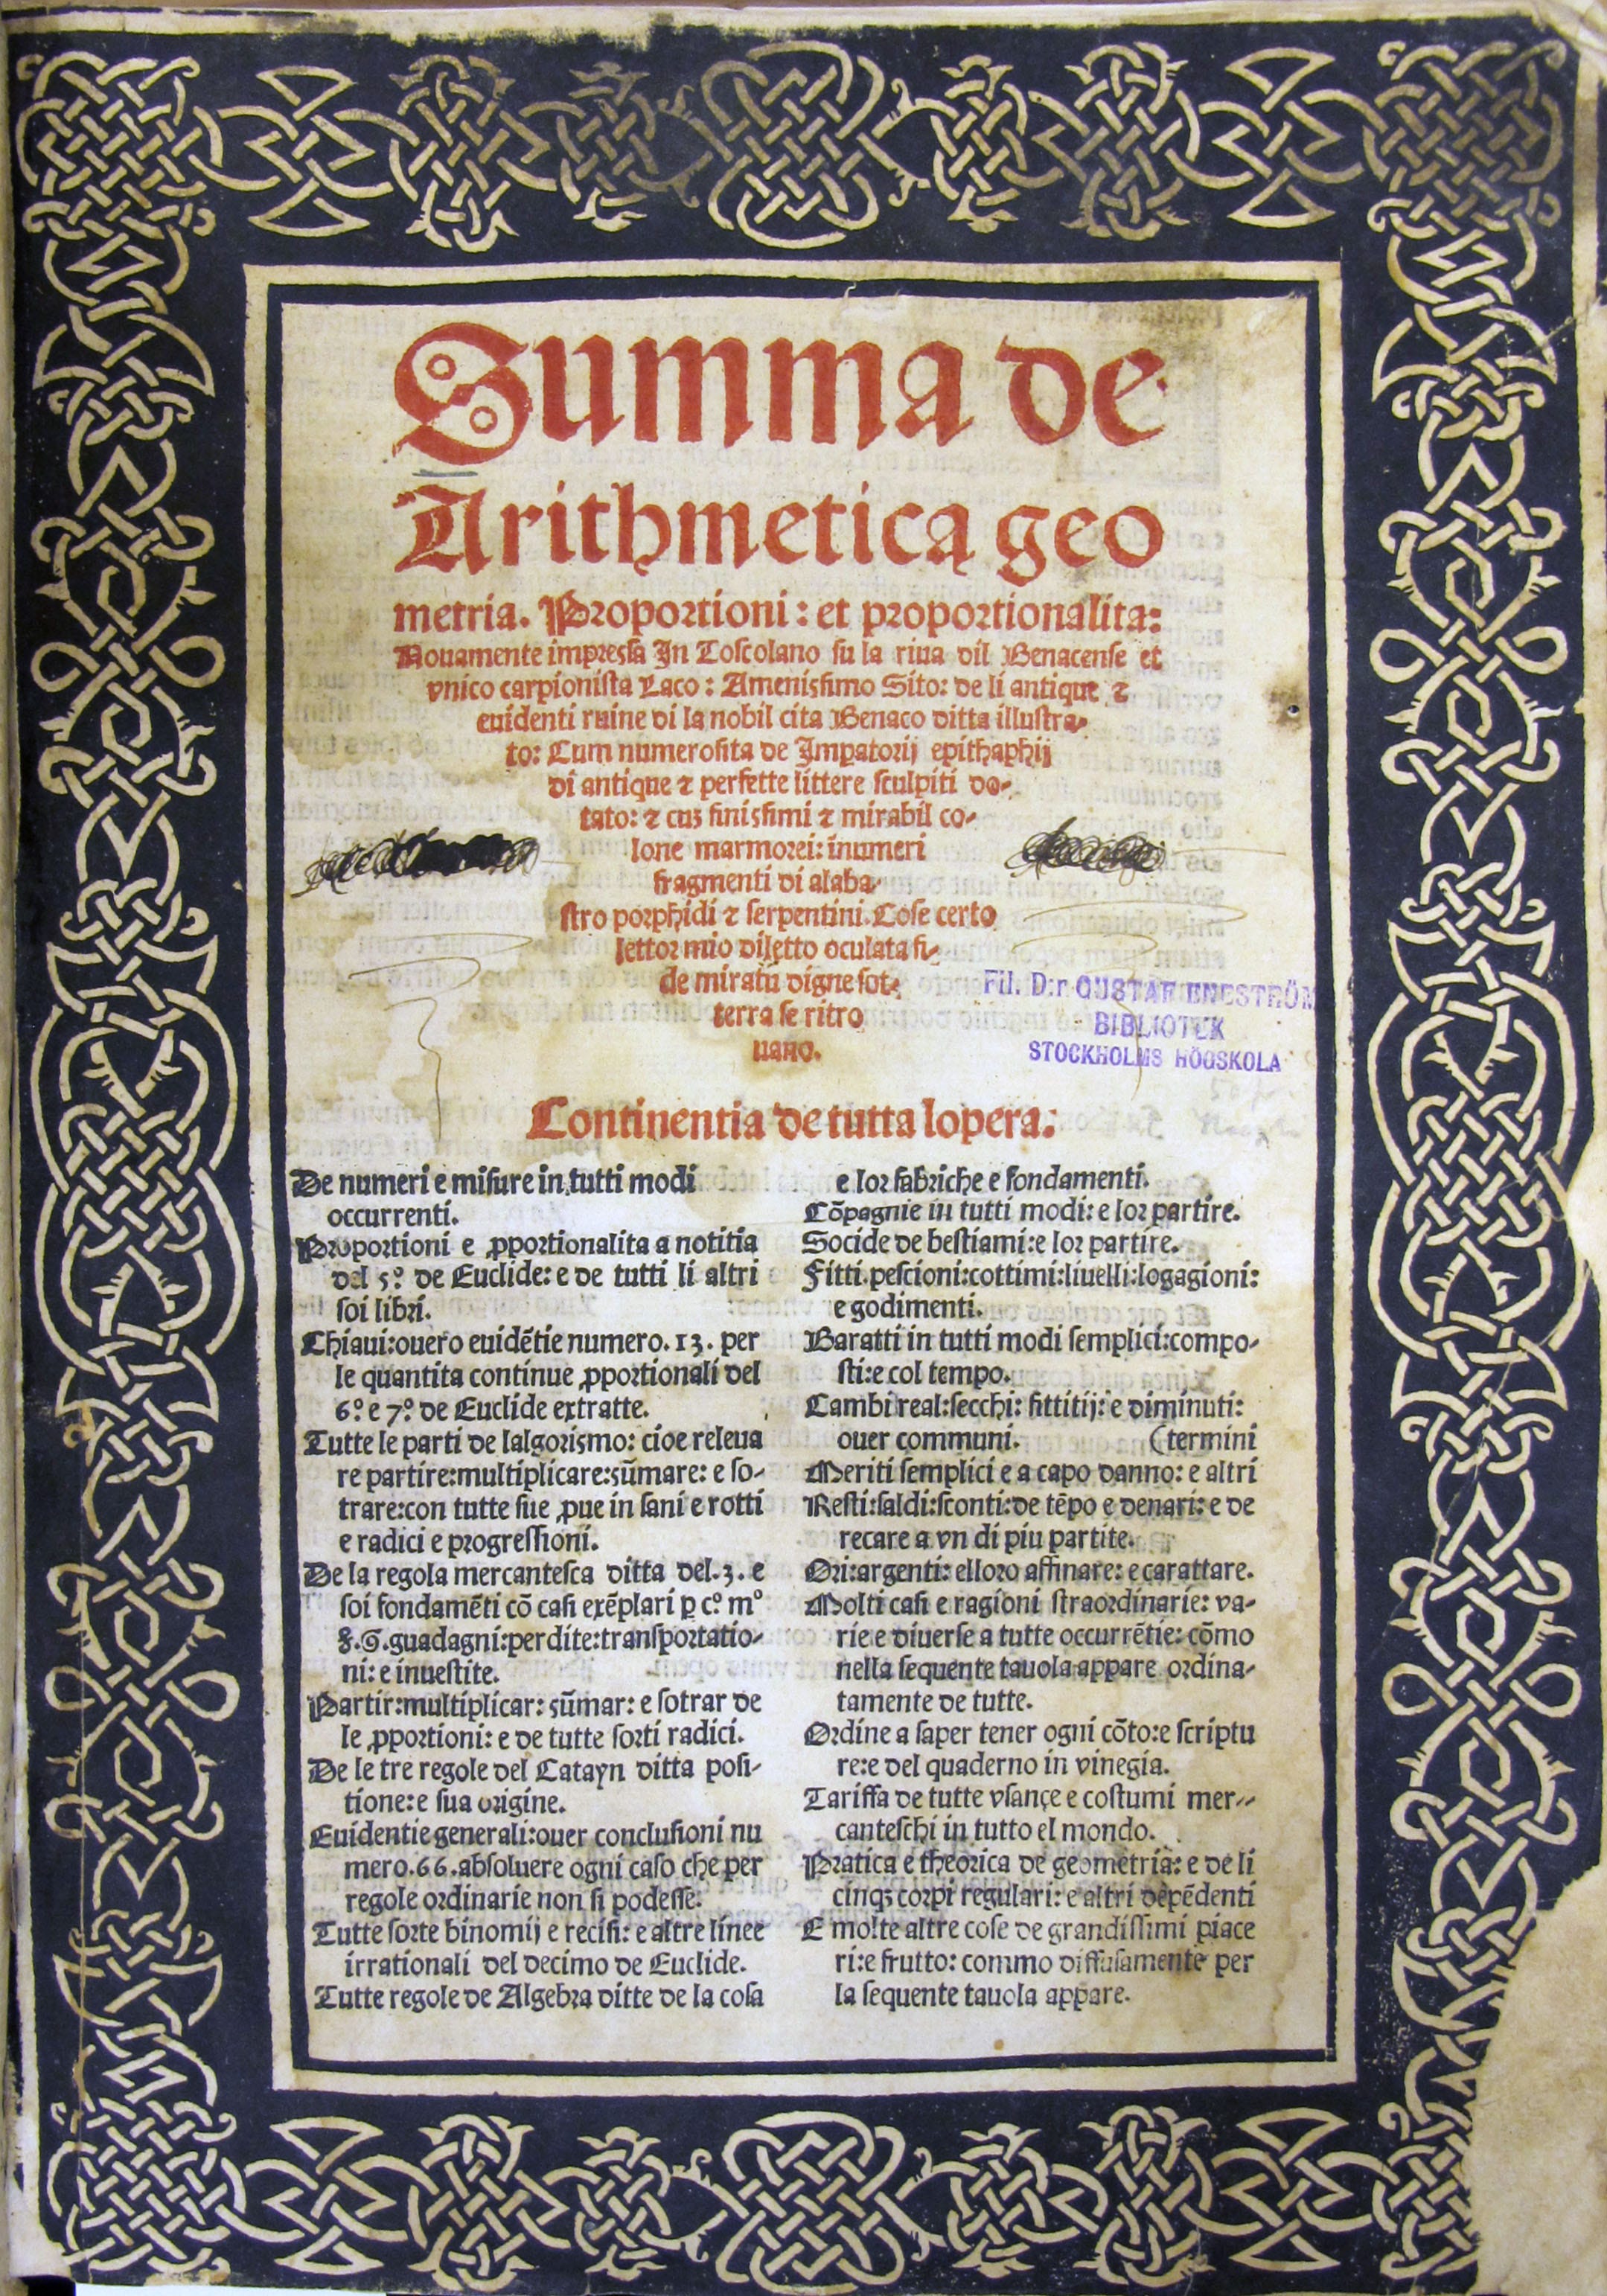 Summa de
Arithmetica geo
metria. Proportioni: et proportionalita:
Nouamente impressa In Toscolano su la riua dil Benacense et
vnico carpionista Laco: Amenissimo Sito: de li antique ⁊
euidenti ruine di la nobil cita Benaco ditta illustra-
to: Cum numerosita de Impatorij epithaphij
di antique ⁊ perfette littere sculpiti do-
tato: ⁊ cuȝ finissimi ⁊ mirabil co-
lone marmorei: īnumeri
fragmenti di alaba-
stro porphidi ⁊ serpentini. Cose certo
lettor mio diletto oculata fi-
de miratu digne sot-
terra se ritro
uano.
Fil. D:r GUSTAF ENESTRÖM
BIBLIOTEK
STOCKHOLMS HÖGSKOLA
Continentia de tutta lopera:
De numeri e misure in tutti modi
occurrenti.
Proportioni e ꝓportionalita a notitia
del 5º de Euclide: e de tutti li altri
soi libri.
Chiaui: ouero euidētie numero. 13. per
le quantita continue ꝓportionali del
6º e 7º de Euclide extratte.
Tutte le parti de lalgorismo: cioe releua
re partire: multiplicare: sūmare: e so-
trare: con tutte sue ꝓue in sani e rotti
e radici e progressioni.
De la regola mercantesca ditta del. 3. e
soi fondamēti cō casi exēplari ꝑ cº mº
guadagni: perdite: transportatio-
ni: e inuestite.
Partir: multiplicar: sūmar: e sotrar de
le ꝓportioni: e de tutte sorti radici.
De le tre regole del Catayn ditta posi-
tione: e sua origine.
Euidentie generali: ouer conclusioni nu
mero. 66. absoluere ogni caso che per
regole ordinarie non si podesse.
Tutte sorte binomij e recisi: e altre linee
irrationali del decimo de Euclide.
Tutte regole de Algebra ditte de la cosa
e lor fabriche e fondamenti.
Cōpagnie in tutti modi: e lor partire.
Socide de bestiami: e lor partire.
Fitti. pescioni: cottimi: liuelli: logagioni:
e godimenti.
Baratti in tutti modi semplici: compo-
sti: e col tempo.
Cambi real: secchi: fittitij: e diminuti:
ouer communi. (termini
Meriti semplici e a capo danno: e altri
Resti: saldi: sconti: de tēpo e denari: e de
recare a vn di piu partite.
Ori: argenti: elloro affinare: e carattare.
Molti casi e ragioni straordinarie: va-
rie e diuerse a tutte occurrētie: cōmo
nella sequente tauola appare ordina-
tamente de tutte.
Ordine a saper tener ogni cōto: e scriptu
re: e del quaderno in vinegia.
Tariffa de tutte vsançe e costumi mer-
canteschi in tutto el mondo.
Pratica e theorica de geometria: e de li
cinqȝ corpi regulari: e altri depēdenti
E molte altre cose de grandissimi piace
ri: e frutto: commo diffusamente per
la sequente tauola appare.